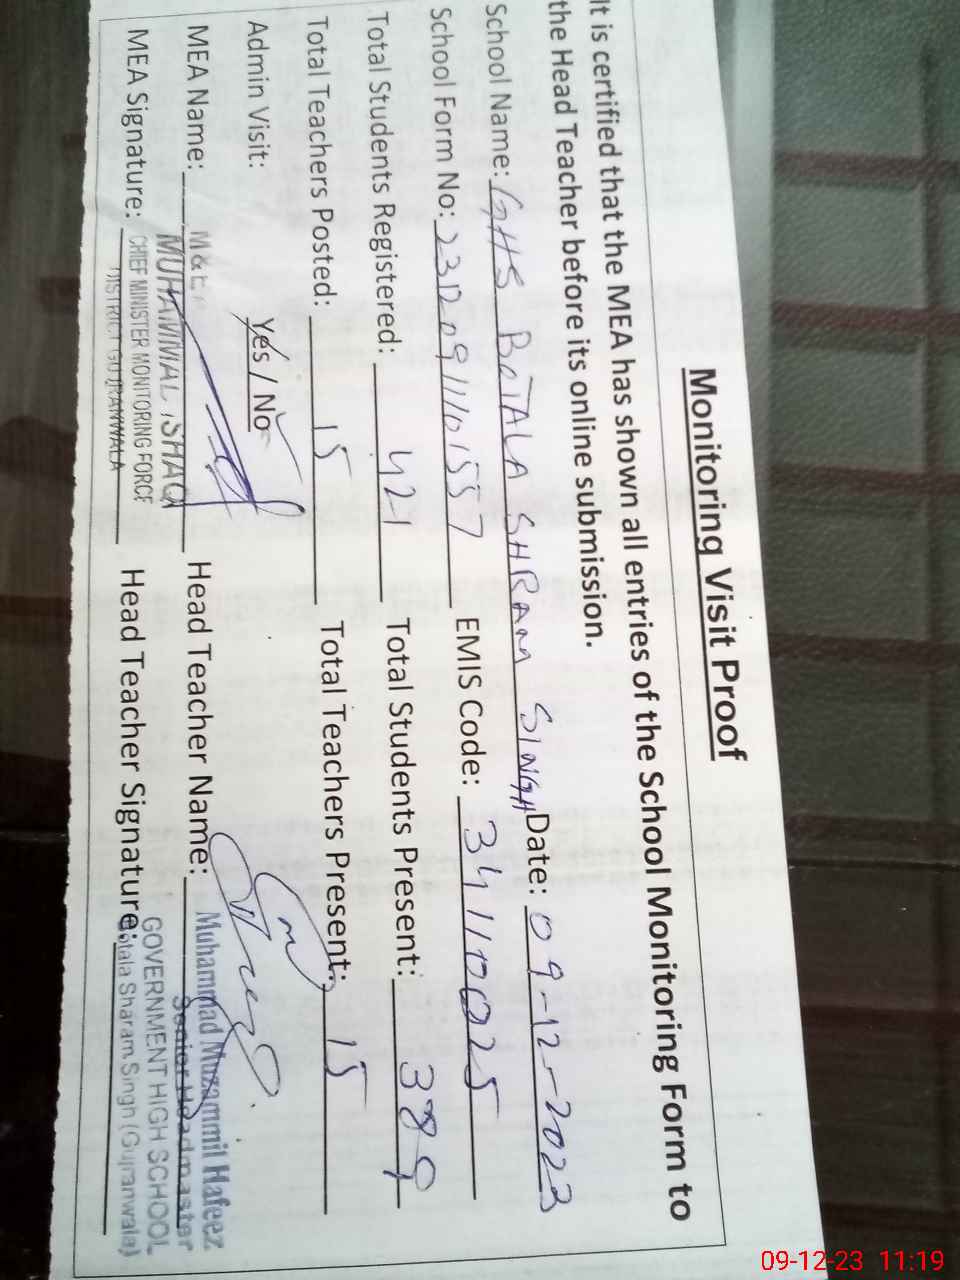 Monitoring Visit Proof
It is certified that the MEA has shown all entries of the School Monitoring Form to
the Head Teacher before its online submission.
School Name: GHS BOTALA SHRAM SINGH Date: 09-12-2023
School Form No: 23120911101557 EMIS Code: 34110025
Total Students Registered: 421 Total Students Present: 389
Total Teachers Posted: 15 Total Teachers Present: 15
Admin Visit: Yes / No
MEA Name: Head Teacher Name:
MEA Signature: Head Teacher Signature:
MUHAMMAD
CHIEF MINISTER MONITORING FORCE
DISTRICT GUJRANWALA
Muhammad Muzammil Hafeez
Senior Headmaster
GOVERNMENT HIGH SCHOOL
Botala Sharam Singh (Gujranwala)
09-12-23 11:19